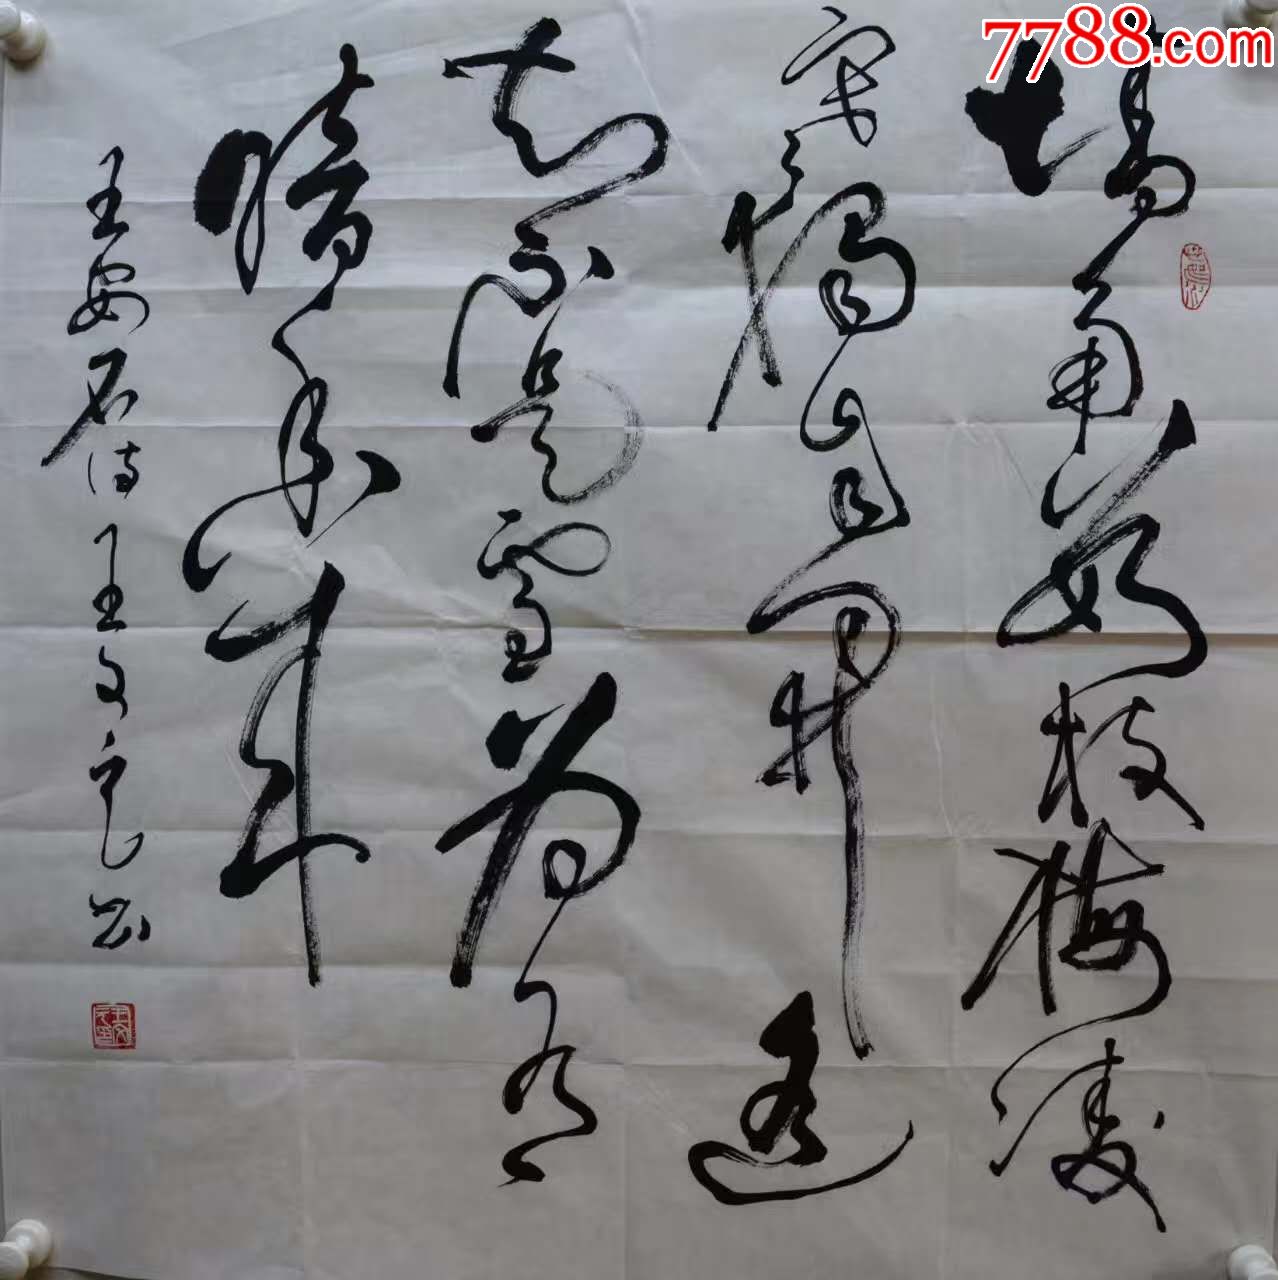 7788.com
墙角數枝梅凌
寒獨自開遥
知不是雪為有
暗香來
王安石诗王文元书